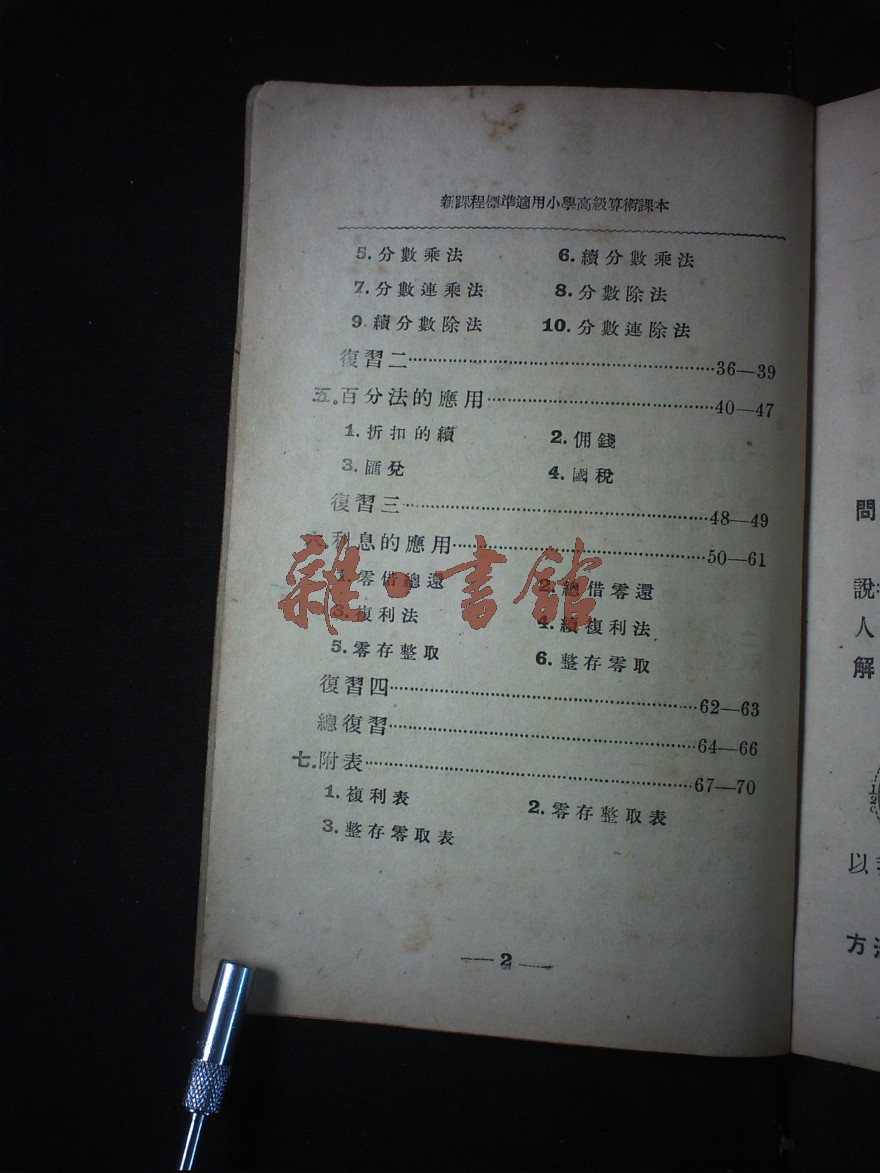 新課程標準適用小學高級算術課本
5. 分數乘法 6. 續分數乘法
7. 分數連乘法 8. 分數除法
9. 續分數除法 10. 分數連除法
復習二……36—39
五. 百分法的應用……40—47
1. 折扣的續 2. 佣錢
3. 匯兌 4. 國稅
復習三……48—49
六 利息的應用……50—61
1. 零借總還 2. 總借零還
3. 複利法 4. 續複利法
5. 零存整取 6. 整存零取
復習四……62—63
總復習……64—66
七. 附表……67—70
1. 複利表 2. 零存整取表
3. 整存零取表
— 2 —
雜·書館
問
說
人
解
以
方法